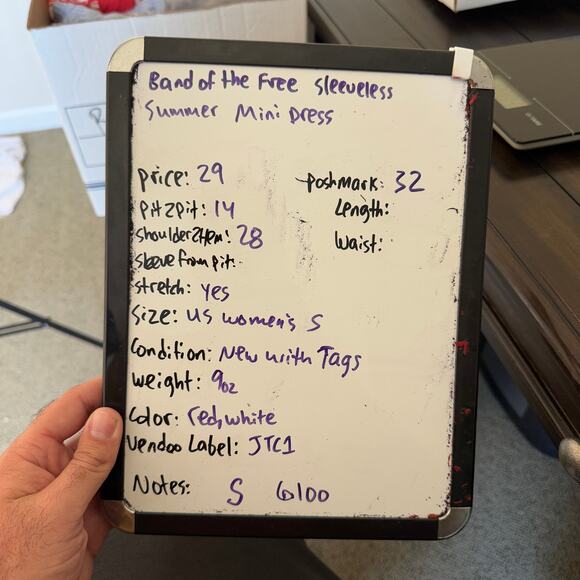 Band of the Free Sleeveless
Summer Mini Dress
Price: 29
Poshmark: 32
Pit2pit: 14
Length:
Shoulder2Hem: 28
Waist:
Sleeve from pit:
Stretch: yes
Size: US women's S
Condition: New with Tags
Weight: 9oz
Color: red, white
Vendoo Label: JTC1
Notes: S 6100